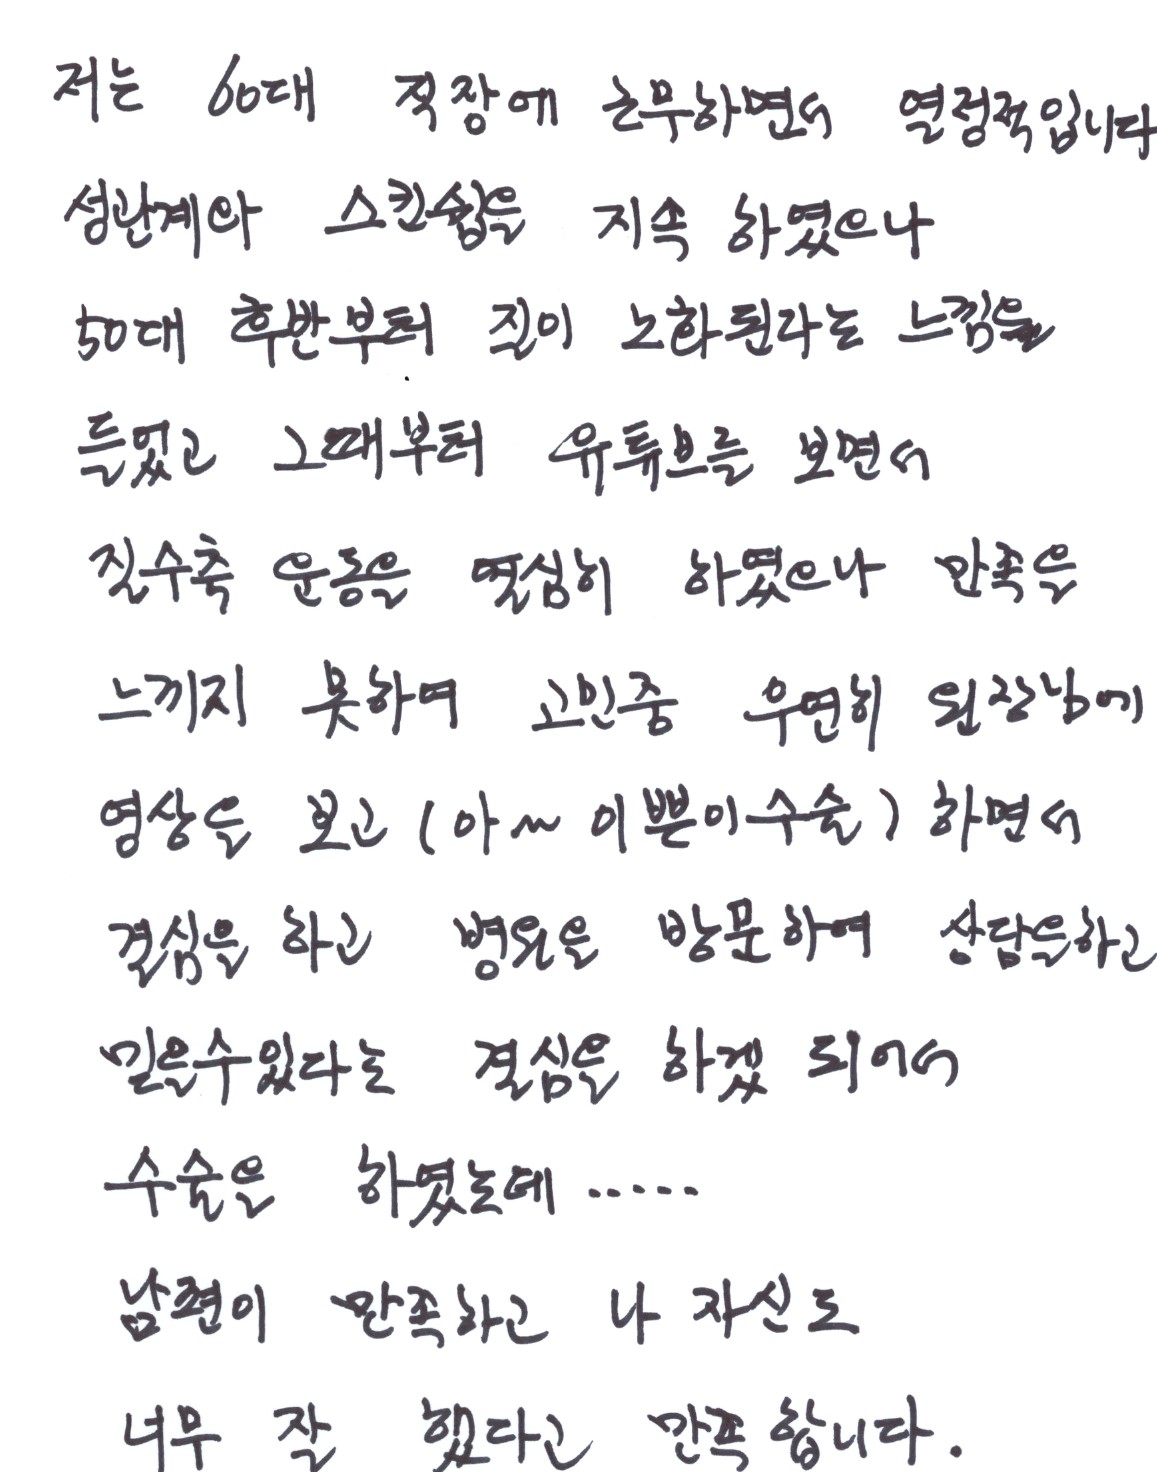 저는 60대 직장에 근무하면서 열정적입니다
성관계와 스킨쉽을 지속 하였으나
50대 후반부터 질이 노화된다라는 느낌을
들었고 그때부터 유튜브를 보면서
질수축 운동을 열심히 하였으나 만족을
느끼지 못하여 고민중 우연히 원장님에
영상을 보고 (아~ 이쁜이수술) 하면서
결심을 하고 병원을 방문하여 상담을하고
믿을수있다는 결심을 하겠 되어서
수술을 하였는데 .....
남편이 만족하고 나 자신도
너무 잘 했다고 만족합니다.